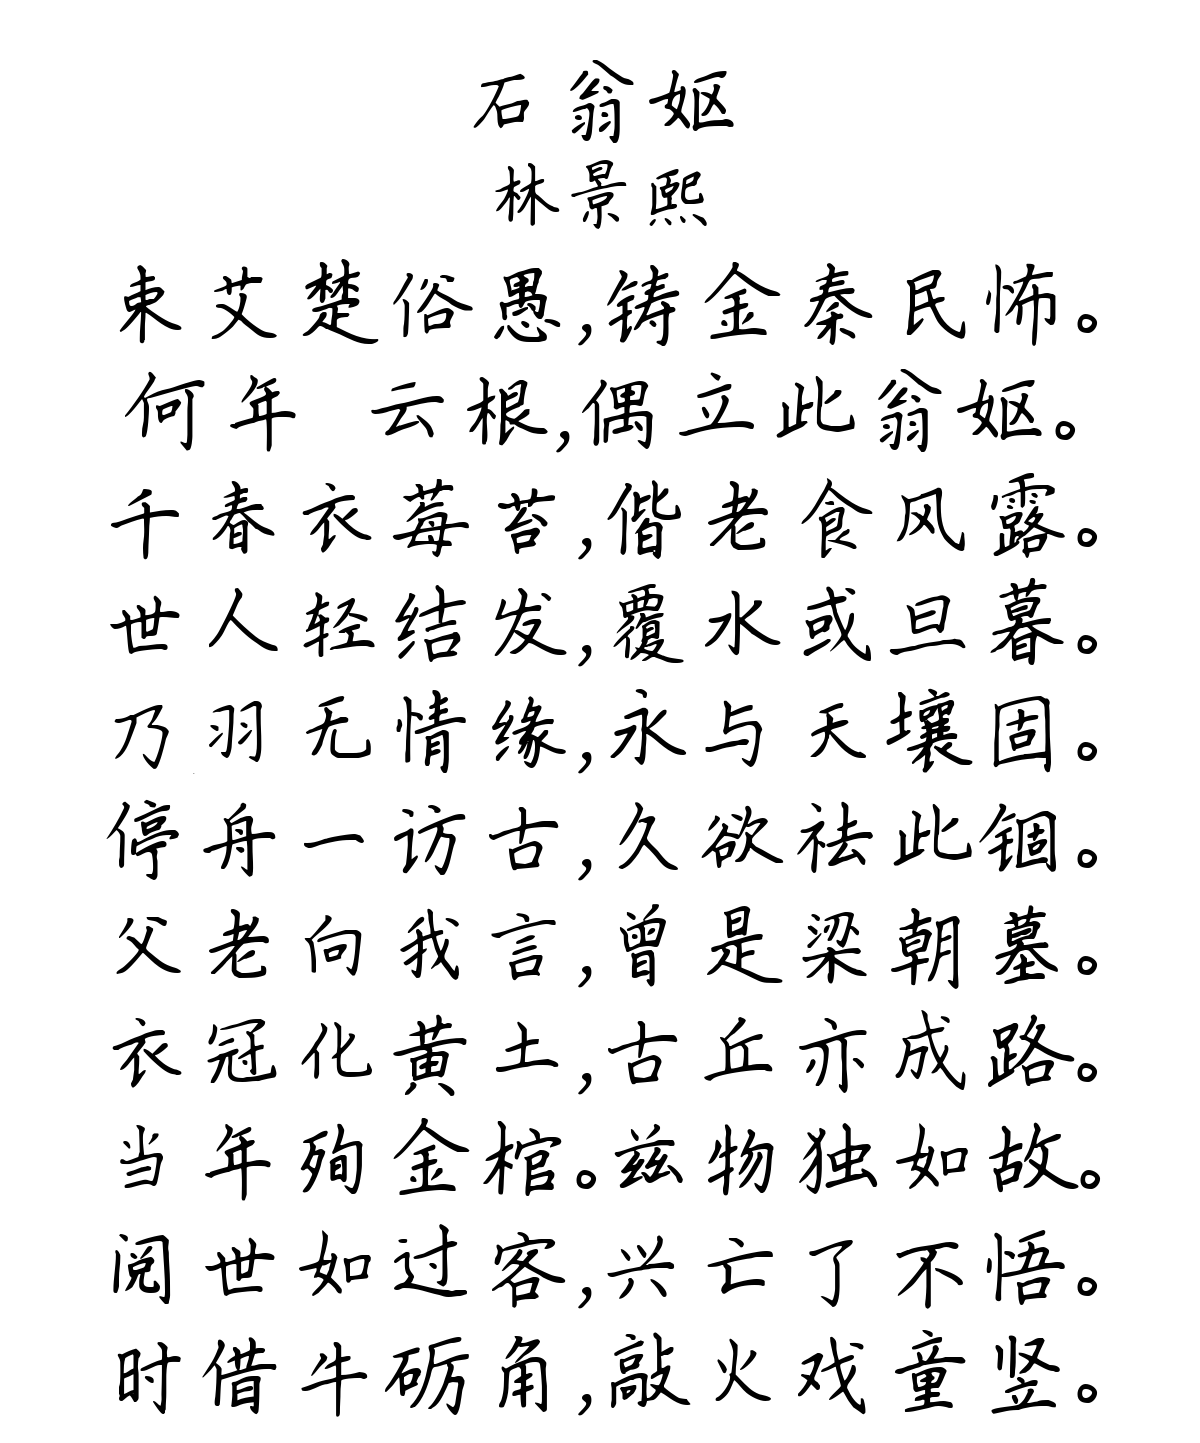 石翁妪
林景熙
束艾楚俗愚,铸金秦民怖。
何年 云根,偶立此翁妪。
千春衣莓苔,偕老食风露。
世人轻结发,覆水或旦暮。
乃羽无情缘,永与天壤固。
停舟一访古,久欲祛此锢。
父老向我言,曾是梁朝墓。
衣冠化黄土,古丘亦成路。
当年殉金棺。兹物独如故。
阅世如过客,兴亡了不悟。
时借牛砺角,敲火戏童竖。